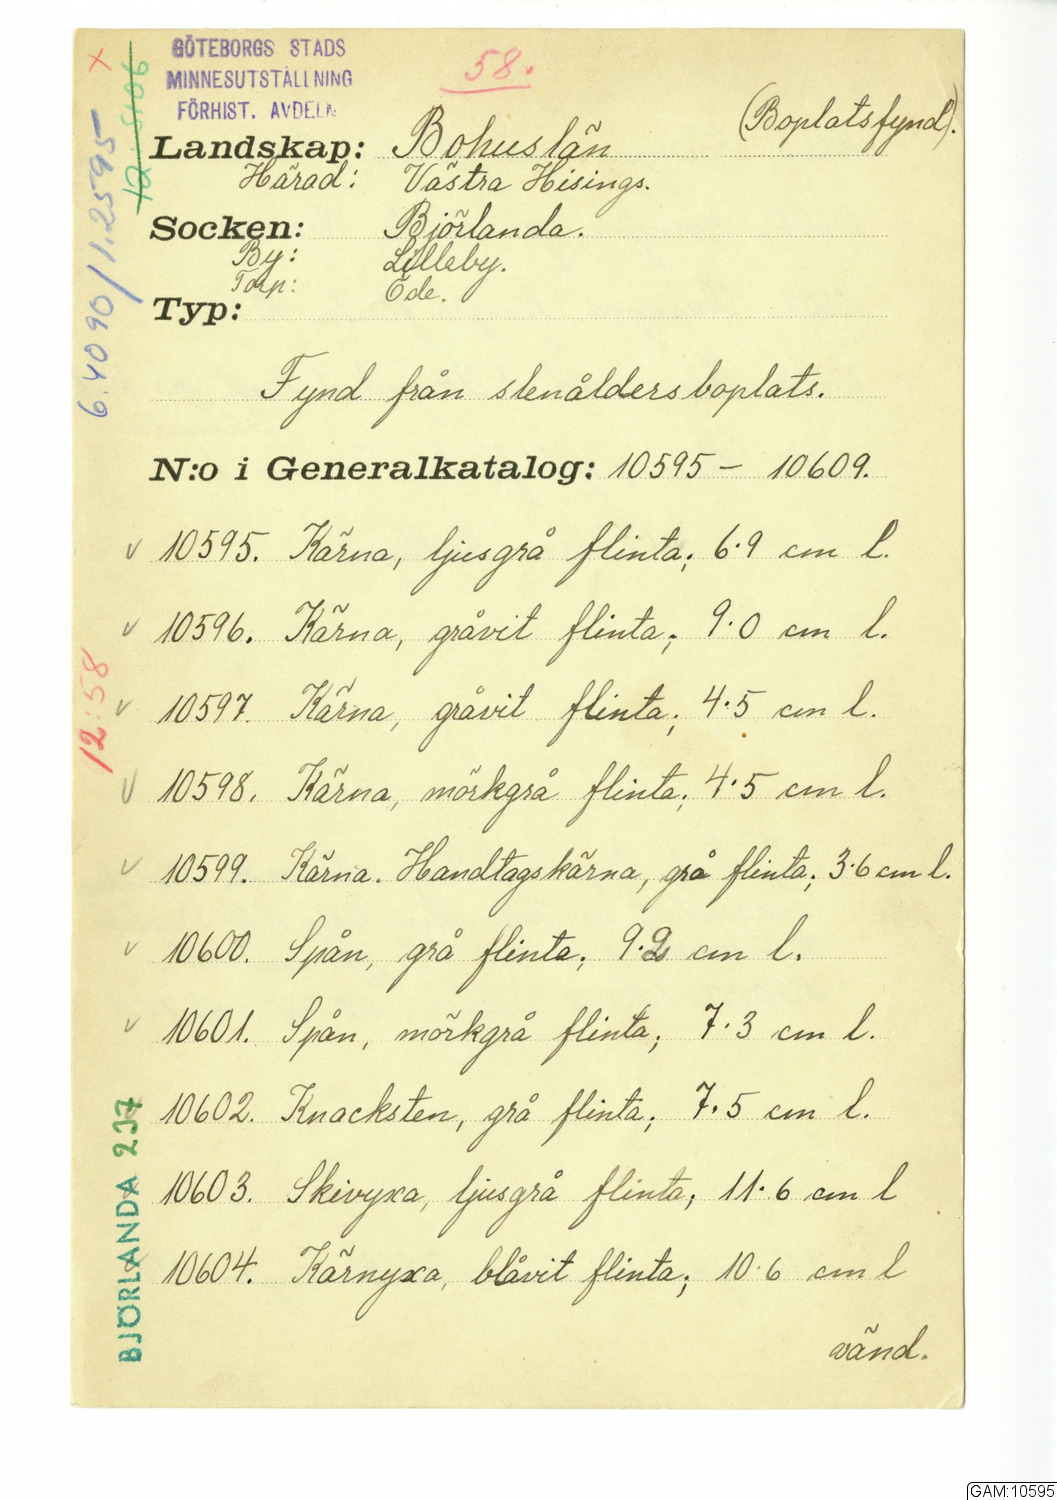 GÖTEBORGS STADS
MINNESUTSTÄLLNING
FÖRHIST. AVDELN
58.
(Boplatsfynd).
Landskap: Bohuslän
Härad: Västra Hisings.
Socken: Björlanda.
By: Lilleby.
Torp: Öde.
Typ:
Fynd från stenåldersboplats.
N:o i Generalkatalog: 10595 – 10609.
v 10595. Kärna, ljusgrå flinta; 6.9 cm l.
v 10596. Kärna, gråvit flinta; 9.0 cm l.
v 10597. Kärna, gråvit flinta; 4.5 cm l.
v 10598. Kärna, mörkgrå flinta; 4.5 cm l.
v 10599. Kärna. Handtagskärna, grå flinta; 3.6 cm l.
v 10600. Spån, grå flinta; 9.2 cm l.
v 10601. Spån, mörkgrå flinta; 7.3 cm l.
10602. Knacksten, grå flinta; 7.5 cm l.
10603. Skivyxa, ljusgrå flinta; 11.6 cm l
10604. Kärnyxa, blåvit flinta; 10.6 cm l
vänd.
x
6.4090/1.2595
12:58
BJÖRLANDA 237
GAM:10595